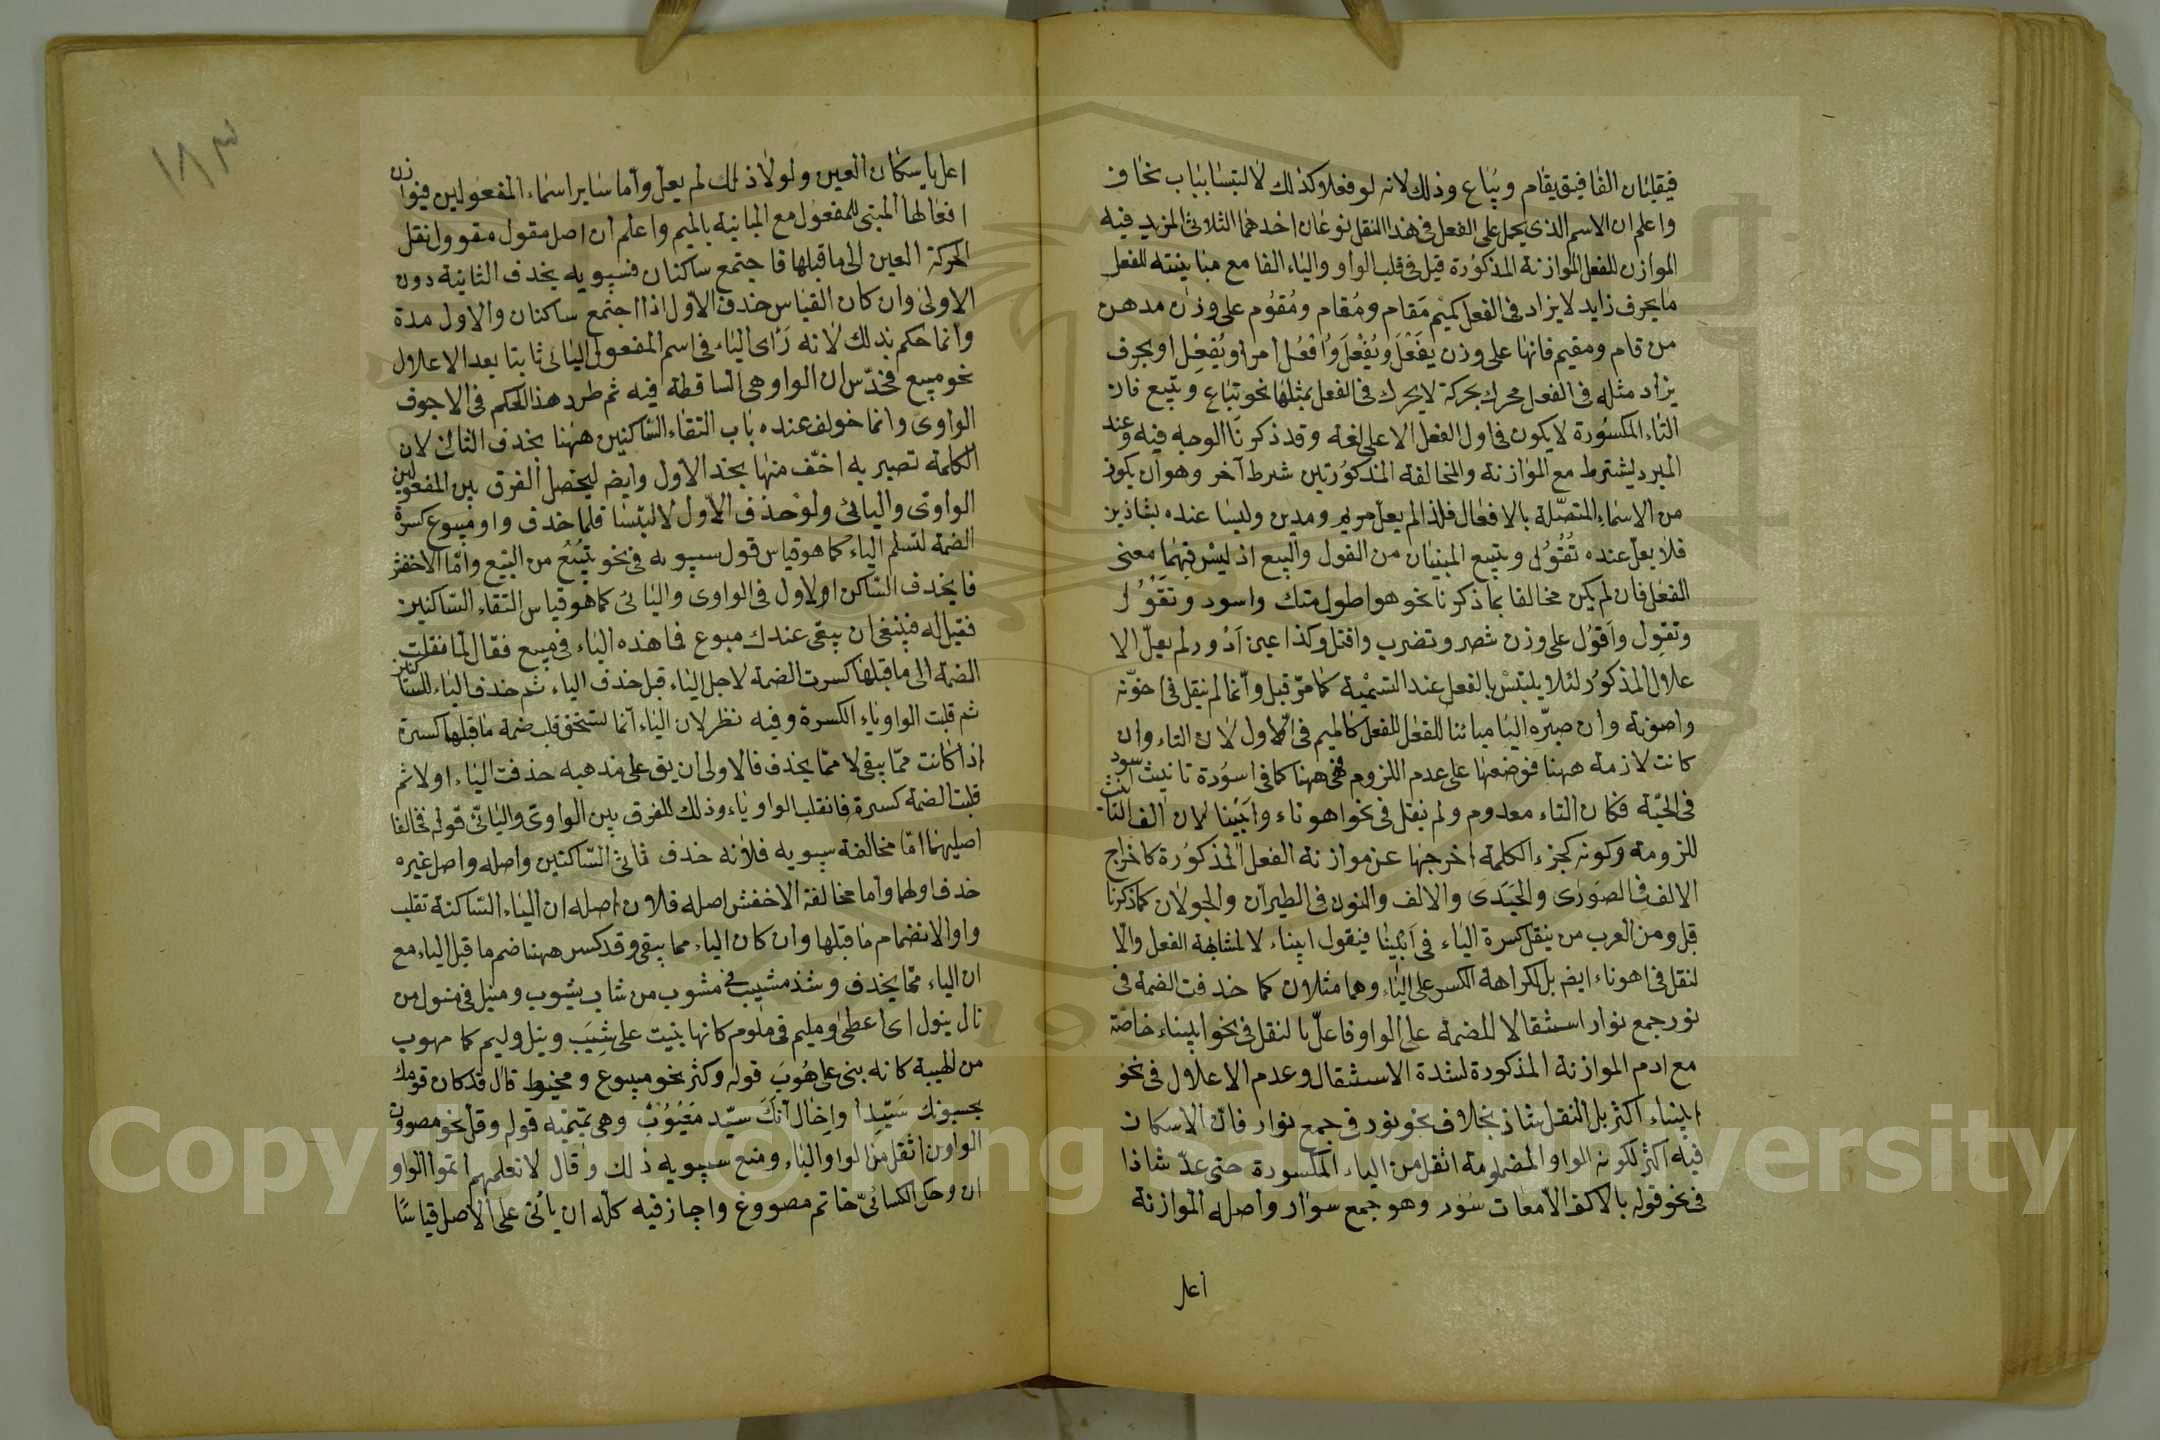 فيقلبان الفا فيق يقام ويباع وذلك لانه لو فعلا كذلك لالتبسا بباب يخاف
واعلم ان الاسم الذى يحمل على الفعل فى هذا النقل نوعان احدهما الثلاثى المزيد فيه
الموازن للفعل الموازنة المذكورة قبل فى قلب الواو والياء الفا مع مباينته للفعل
مابحرف زايد لا يزاد فى الفعل كميم مَقام ومُقام ومُقوُم على وزن مدهن
من قام ومقيم فانها على وزن يَفْعَل ويُفْعَل وُافْعُل امرا ويُفعِل او بحرف
يزاد مثله فى الفعل محرك بحركة لا يحرك فى الفعل بمثلها نحو تباع وتبيع فان
التاء المكسورة لا يكون فى اول الفعل الا على لغة وقد ذكرنا الوجه فيه وعند
المبرد يشترط مع الموازنة والمخالفة المذكورتين شرط آخر وهو ان يكون
من الاسماء المتصّلة بالافعال فلذا لم يعلّ مريم ومدين وليسا عنده بشاذين
فلا يعلّ عنده تُقُوُل وتبيع المبنيان من القول والبيع اذ ليس فيهما معنى
الفعل فان لم يكن مخالفا بما ذكرنا نحو هو اطول منك واسود وتَقُوُل
وتقِول واَقوُل على وزن تنصر وتضرب واقتل وكذا عين اَدْور لم يعلّ الا
علال المذكور لئلا يلتبس بالفعل عند التسمية كما مرّ قبل وانما لم ينقل فى اخوّنه
واصونة وان صيّره اليا مباينا للفعل للفعل كالميم فى الاول لان التاء وان
كانت لازمة ههنا فوضعها على عدم اللزوم فهى ههنا كما فى اسوُدة تانيث اسود
فى الحيّة فكان التاء معدوم ولم ينقل فى نحو اهوناء واَبْيِنا لان الف التانيث
للزومه وكونه كجزء الكلمة اخرجها عن موازنة الفعل المذكورة كاخراج
الالف فى الصَورَى والحَيَدى والالف والنون فى الطيران والجولان كما ذكرنا
قبل ومن العرب من ينقل كسرة الياء فى اَبْيِنا فيقول ابيناء لا لمشابهة الفعل والّا
لنقل فى اهوناء ايضم بل لكراهة الكسر على الياء وهما مثلان كما حذفت الضمة فى
نور جمع نوار استثقالا للضمة على الواو فاعلّ بالنقل فى نحو ابيناء خاصّة
مع ادم الموازنة المذكورة لشدة الاستثقال وعدم الاعلال فى نحو
ابيناء اكثر بل النقل شاذ بخلاف نحو نور فى جمع نوار فان الاسكان
فيه اكثر لكونه الواو المضمومة اثقل من الياء المكسورة حتى عدّ شاذا
فى نحو قوله بالاكف الاّمعات سُوُر وهو جمع سوار واصله الموازنة
اعل
١٨٣
اعل باسكان العين ولولا ذلك لم يعلّ وأما سايراسماء المفعولين فيوازن
افعالها المبنى للمفعول مع المباينة بالميم واعلم ان اصل مقول مقوول نقل
الحركة العين الى ماقبلها فاجتمع ساكنان فسيبويه يحذف الثانية دون
الاولى وان كان القياس حذف الاول اذا اجتمع ساكنان والاول مدة
وانما حكم بذلك لانه رَأى الياء فى اسم المفعول اليائى ثابتا بعد الاعلال
نحو مبيع فحدّس ان الواو هى الساقطة فيه ثم طرد هذا الحكم فى الاجوف
الواوى وانما خولف عنده باب التقاء الساكنين ههنا بحذف الثانى لان
الكلمة تصير به اخفّ منها بحذ الاول وايضم ليحصل الفرق بين المفعولين
الواوى واليائى ولو حذف الاّول لالتبسا فلما حذف واو مبيوع كسرة
الضمة لتسلم الياء كما هو قياس قول سيبويه فى نحو تبُيُع من البيع وامّا الاخفش
فا يحذف الساكن اولاول فى الواوى واليائى كما هو قياس التقاء الساكنين
فقيل له فينبغى ان يبقى عندك مبوع فما هذه الياء فى مبيع فقال لما نقلت
الضمة الى ماقبلها كسرت الضمة لاجل الياء قبل حذف الياء ثم حذف الياء للساكنين
ثم قلبت الواو ياء الكسرة وفيه نظر لان الياء انما تستحق قلب ضمة ماقبلها كسرة
اذا كانت ممّا يبقى لا ممّا يحذف فالاولى ان يق على مذهبه حذفت الياء اولا ثم
قلبت الضمة كسرة فانقلب الواو ياء وذلك للفرق بين الواوى واليائى قوله فخالفا
اصليهما امّا مخالفة سيبويه فلأنه حذف ثانى السّاكنين واصله واصل غيره
حذف اولهما وأما مخالفة الاخفش اصله فلان اصله ان الياء الساكنة تقلب
واوالانضمام ماقبلها وان كان الياء مما يبقى وقد كسر ههنا ضم ما قبل الياء مع
ان الياء ممّا يحذف وشذ مشيب فى مشوب من شاب يشوب ومنيل فى منول من
نال ينول اى اعطى ومليم فى ملوم كانها بنيت على شِيَب ونيل وليم كما مهوب
من الهيبة كانه بنى على هُوبَ قوله وكثر نحو مبيوع ومخيوط قال قد كان قومك
يحسبونك سَيّدا واِخال اَنك سيّد مَعْيُوُبٌ وهى تميمية قوله وقل نحو مصوون
الواون اثقل من الواو والياء ومنع سيبويه ذلك وقال لا نعلمهم اتموا الواو
ان وحكى الكسائىّ خاتم مصووغ واجاز فيه كلّه ان ياتى على الاصل قياسًا
Copyright © King Saud University